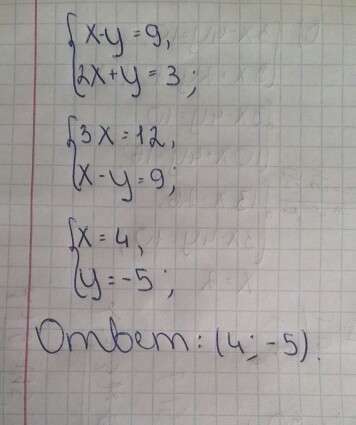 x-y=9,
2x+y=3;
3x=12,
x-y=9;
x=4,
y=-5;
Ответ: (4; -5).